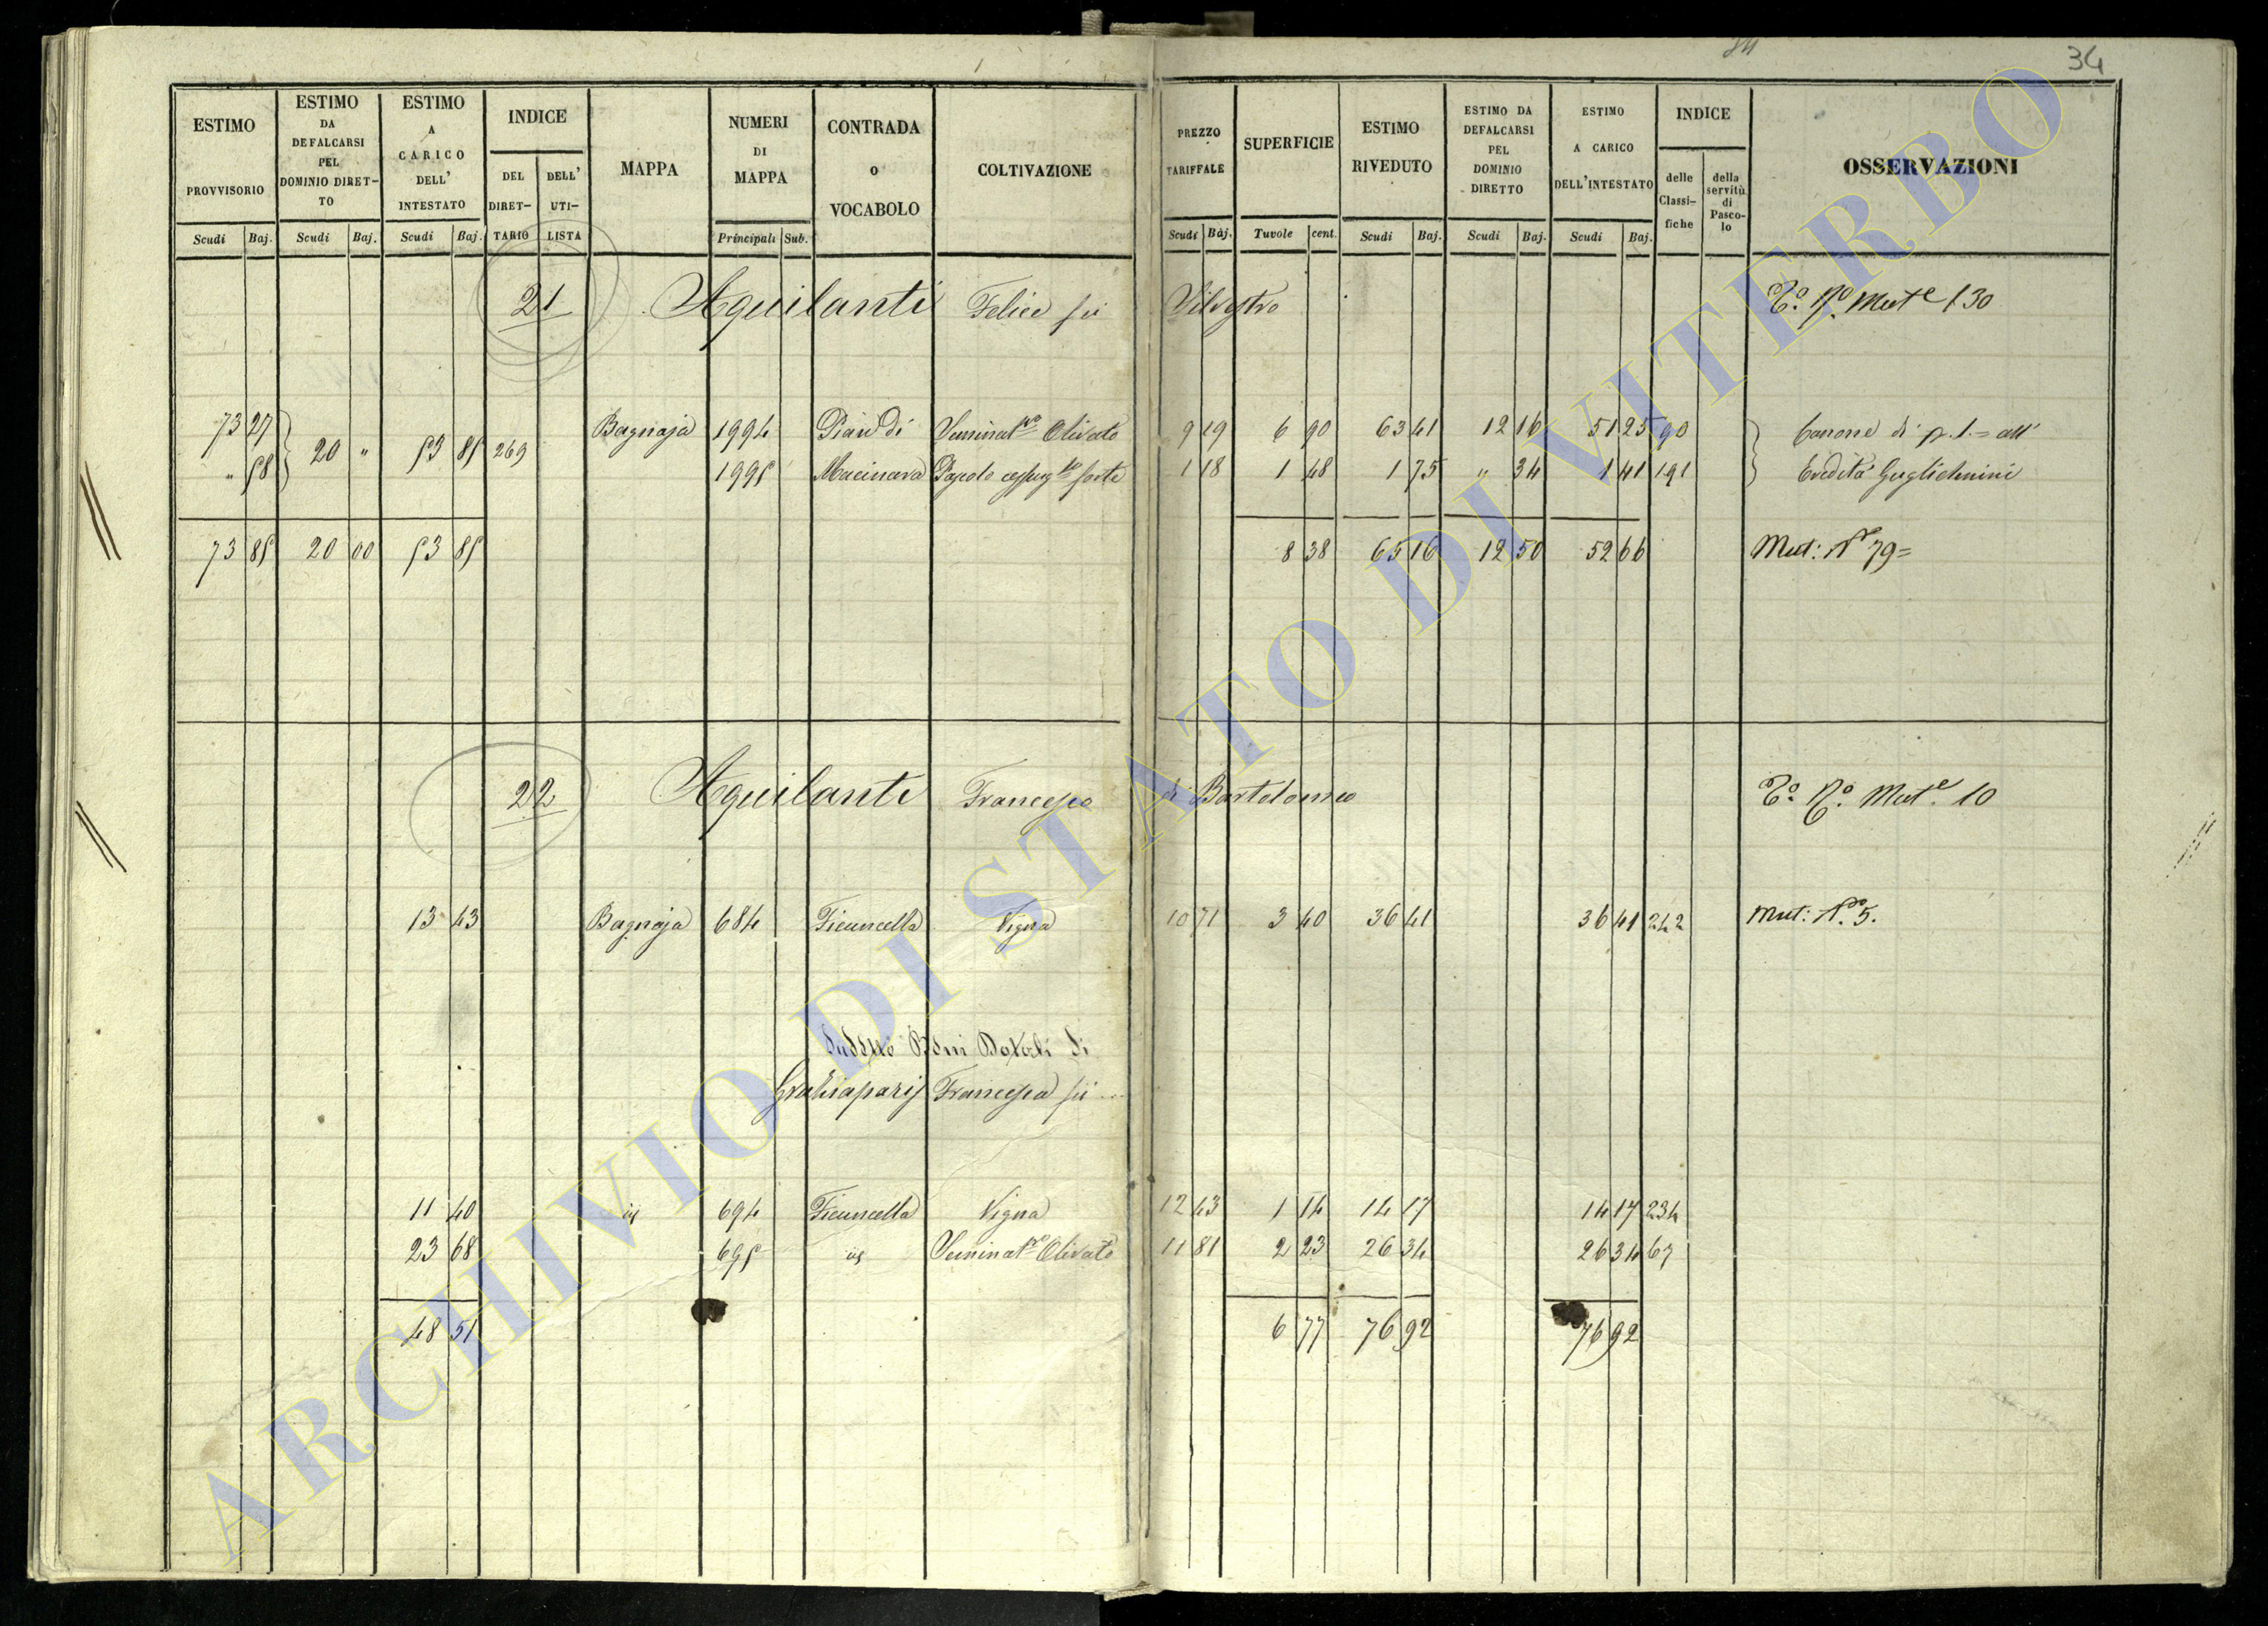 34
ESTIMO PROVVISORIO
ESTIMO DA DEFALCARSI PEL DOMINIO DIRET-TO
ESTIMO A CARICO DELL' INTESTATO
INDICE
DEL DIRET-TARIO
DELL' UTI-LISTA
MAPPA
NUMERI DI MAPPA
CONTRADA o VOCABOLO
COLTIVAZIONE
PREZZO TARIFFALE
SUPERFICIE
ESTIMO RIVEDUTO
ESTIMO DA DEFALCARSI PEL DOMINIO DIRETTO
ESTIMO A CARICO DELL'INTESTATO
INDICE
delle Classi-fiche
della servitù di Pasco-lo
OSSERVAZIONI
Scudi Baj. Scudi Baj. Scudi Baj. Principali Sub. Scudi Baj. Tavole cent. Scudi Baj. Scudi Baj. Scudi Baj.
21 Aquilanti Felice fu Silvestro 130
73 27 20 " 53 85 269 Bagnaja 1994 Pian di Seminat.vo Olivato 9 19 6 90 63 41 12 16 51 25 90 Canone di p.1.= all'
" 58 1995 Macinara Pascolo forte 1 18 1 48 1 75 " 34 1 41 191 Eredità Guglielmini
73 85 20 00 53 85 8 38 65 16 12 50 52 66 Mut: N° 79=
22 Aquilanti Francesco di Bartolomeo 10
13 43 Bagnaja 684 Ficuncella Vigna 10 71 3 40 36 41 36 41 242 Mut: N° 5.
Suddetto Beni Dotali di
Francesca fu ...
11 40 id 694 Ficuncella Vigna 12 43 1 14 14 17 14 17 234
23 68 695 id Seminat.vo Olivato 11 81 2 23 26 34 26 34 67
48 51 6 77 76 92 76 92
ARCHIVIO DI STATO DI VITERBO